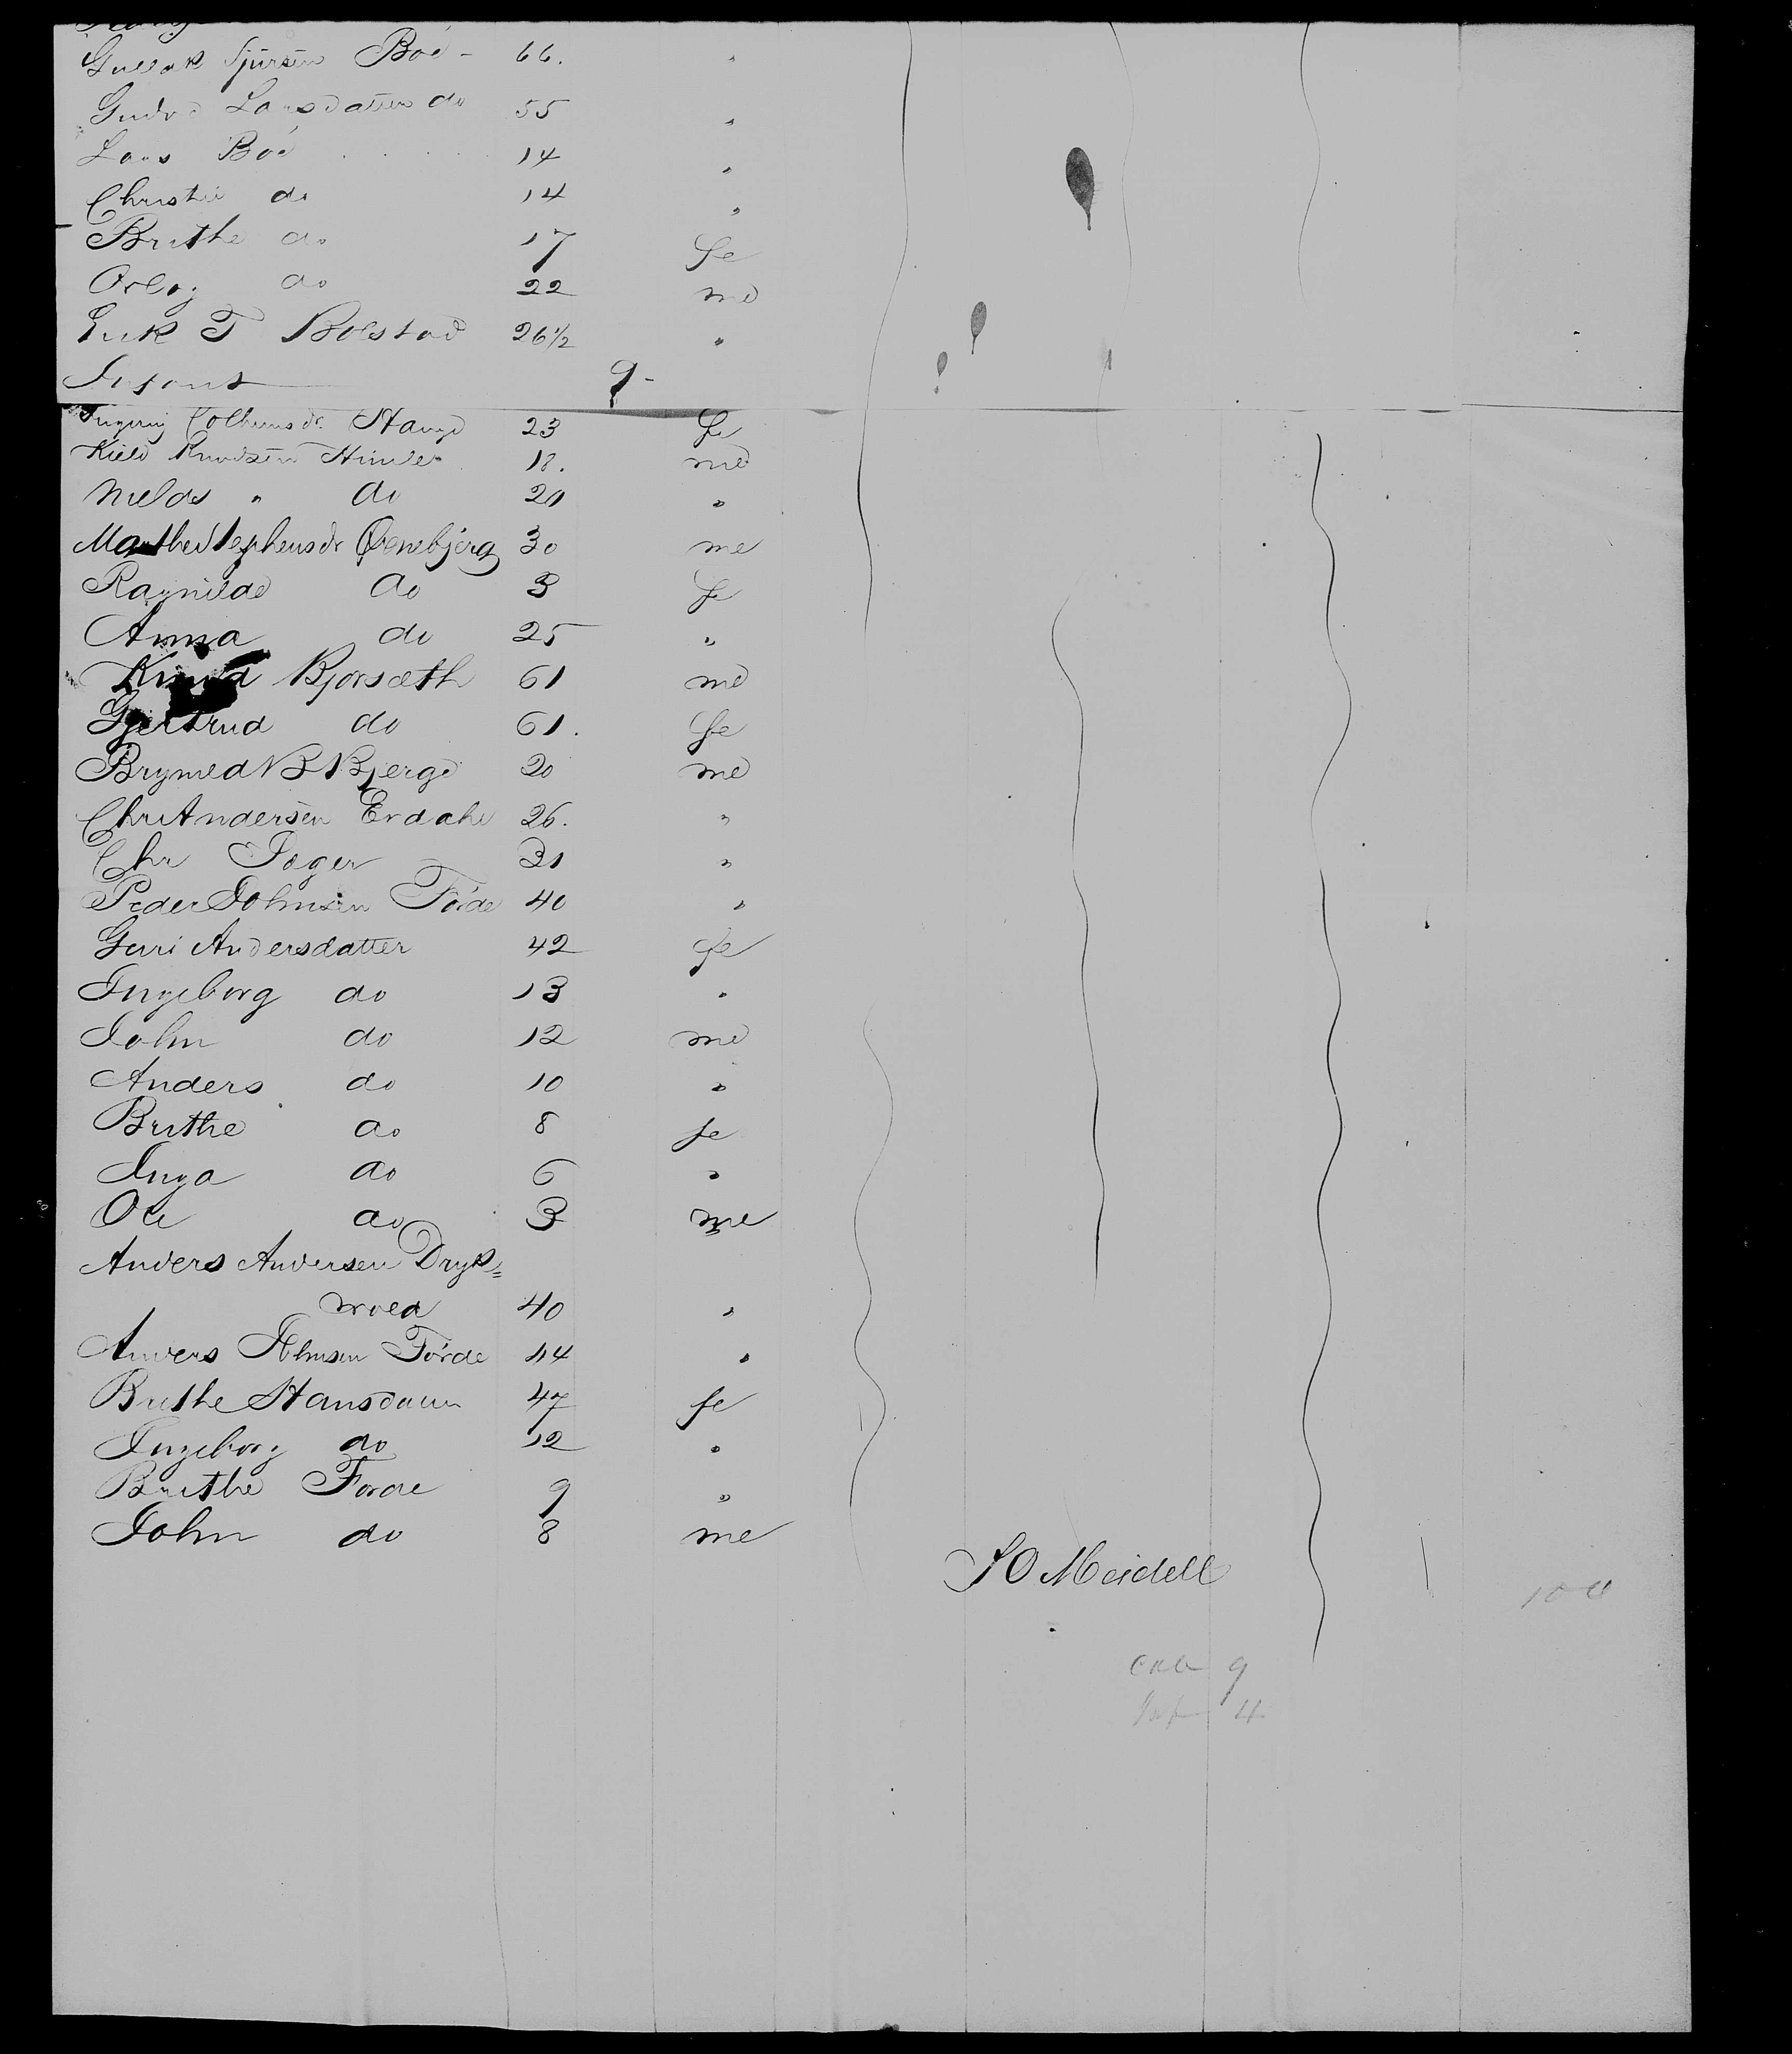 Gullak Sjursen Boe - 66. "
Lars datter do 55 "
Lars Boe 14 "
Christi do 14 "
Brithe do 17 fe
do 22 me
Erik T Bolstad 26 1/2 "
Infant 9 -
Hauge 23 fe
Kield Knudsen Himle 18. me
Nields " do 21 "
Marthe Stephensdr 30 me
Ragnilde do 3 fe
Anna do 25 "
Knud Bjorsæth 61 me
Gjertrud do 61. fe
Bryned B Bjerge 20 me
Chr Andersen Erdahl 26. "
Chr Jæger 31 "
Peder Johnsen Förde 40 "
Guri Andersdatter 42 fe
Ingeborg do 13 "
John do 12 me
Anders do 10 "
Brithe do 8 fe
Inga do 6 "
Ole do 3 me
Anders Andersen Dryk=
40 "
Anders Johnsen Förde 44 "
Brithe Hansdatter 47 fe
Ingeborg do 12 "
Brithe Forde 9 "
John do 8 me
J O Meidell
9
Inf 4